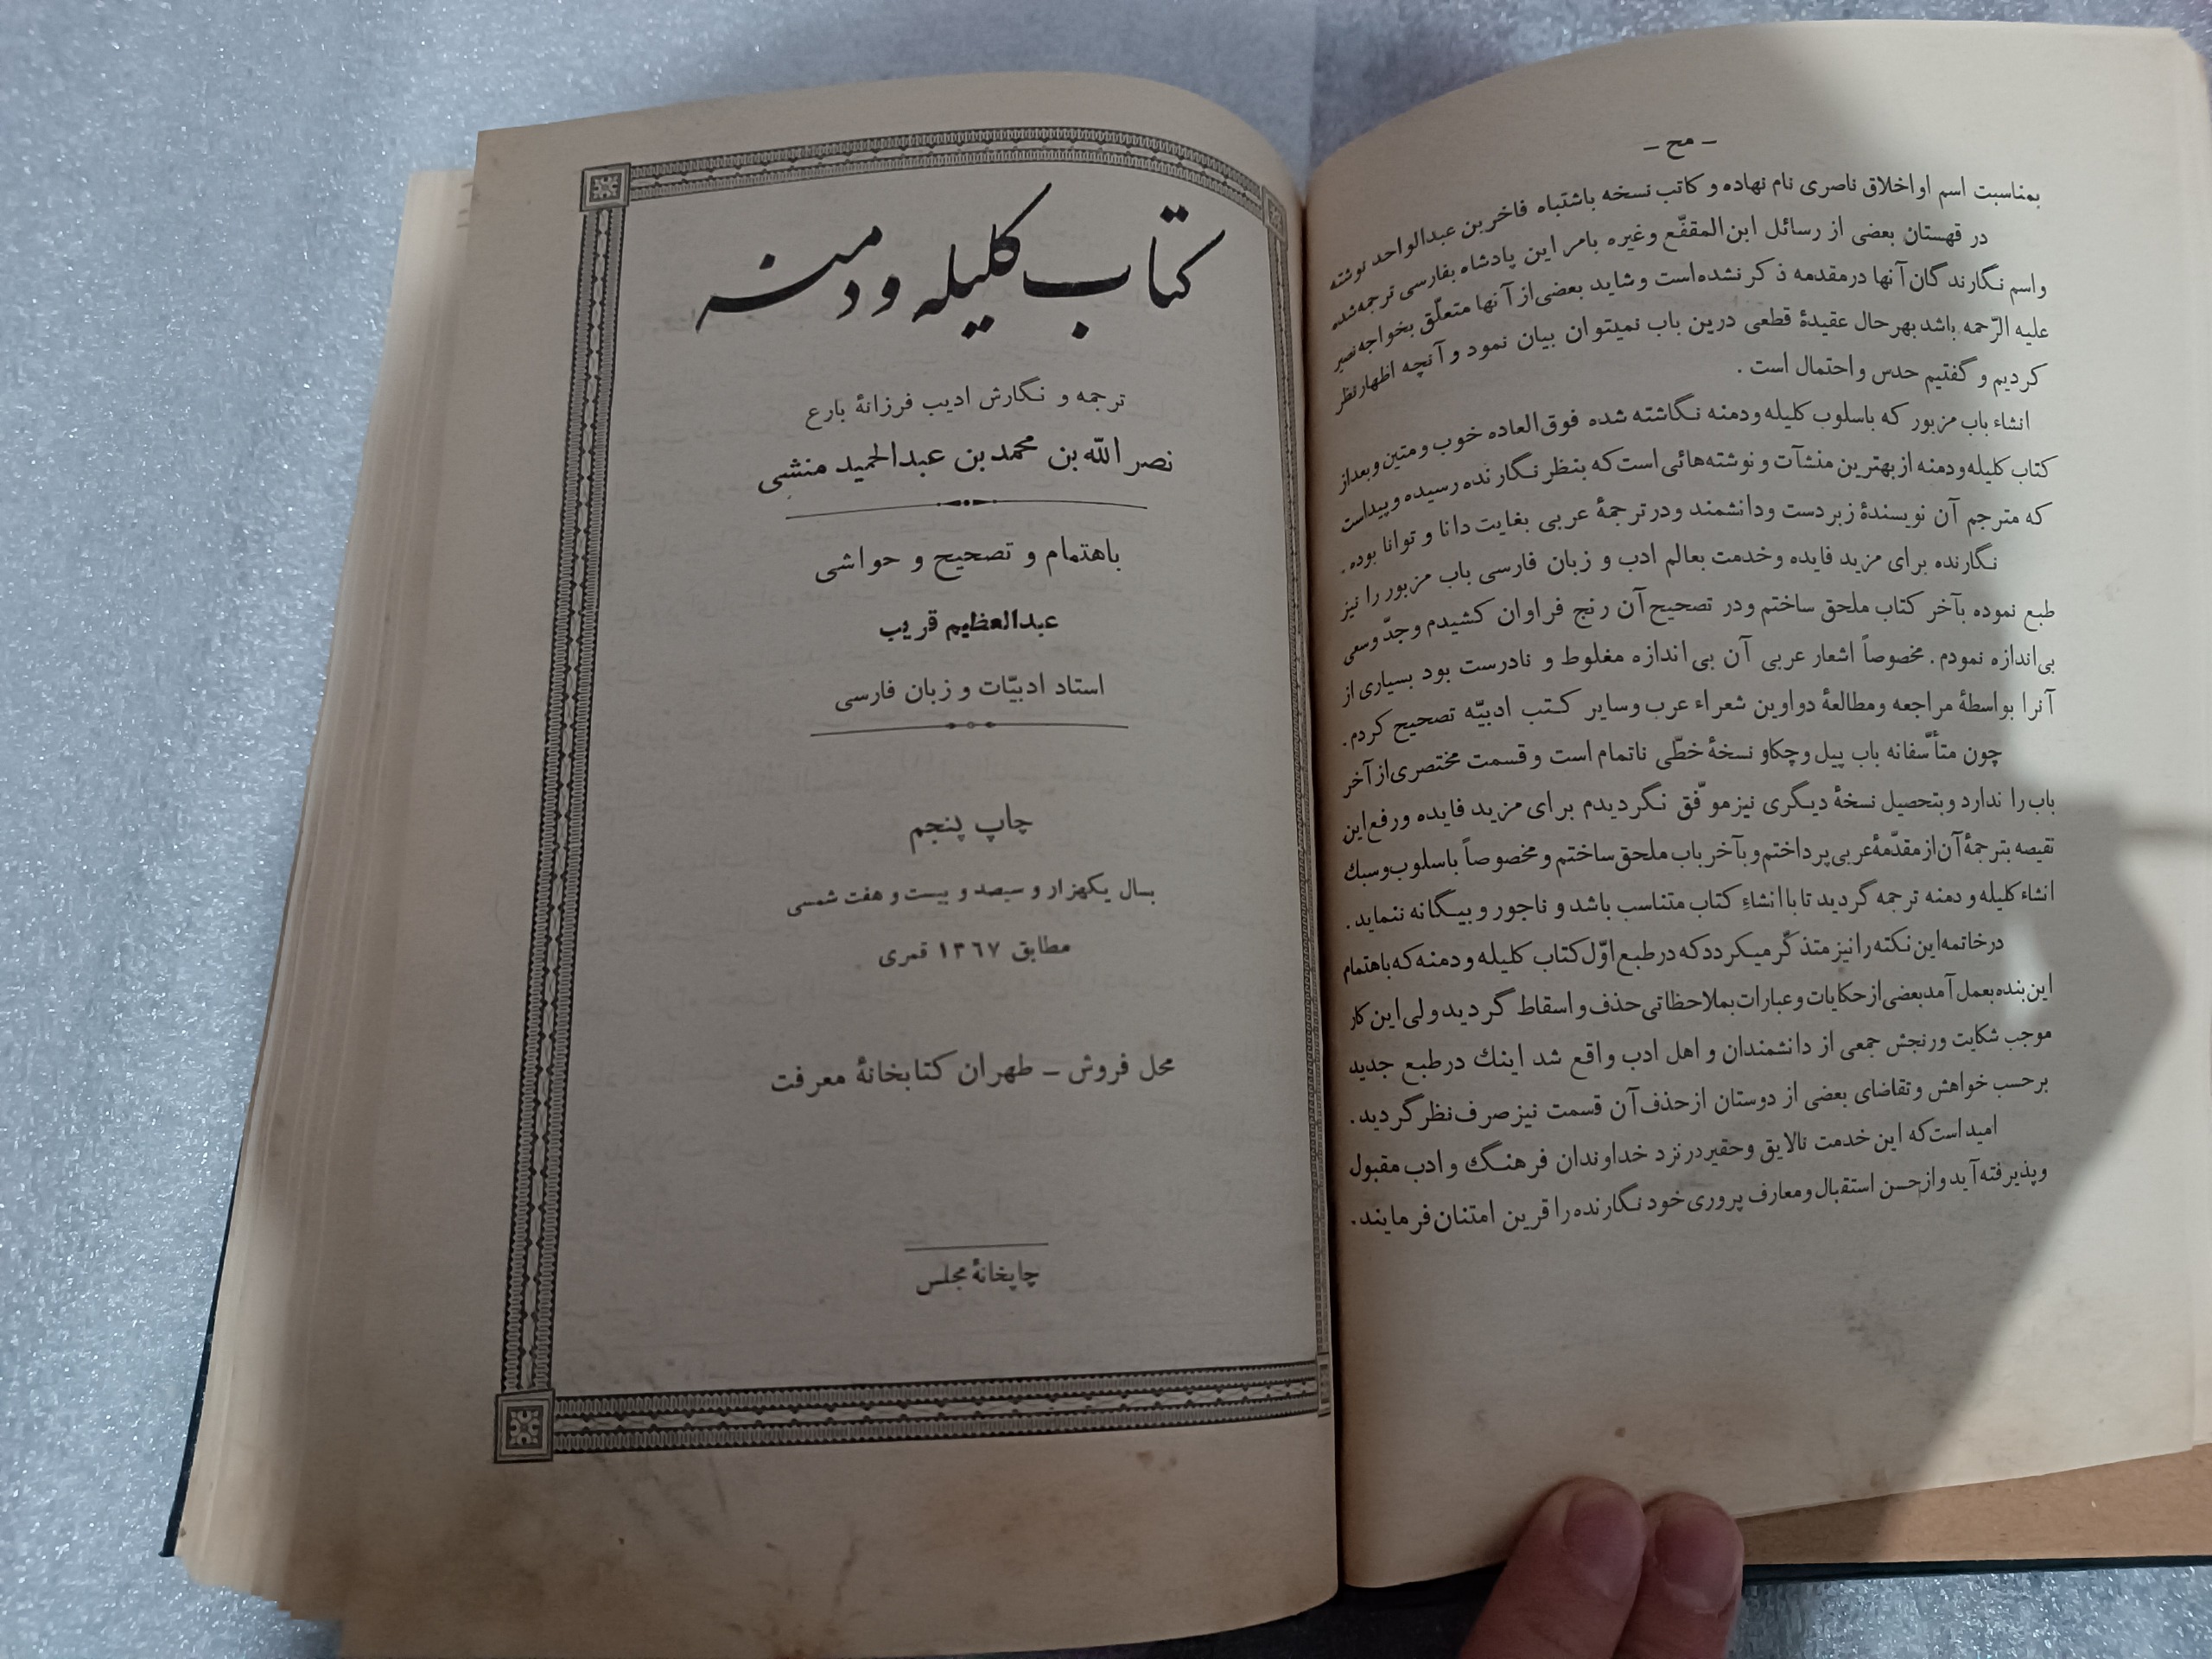 ـ مح ـ
بمناسبت اسم او اخلاق ناصری نام نهاده و کاتب نسخه باشتباه فاخر بن عبدالواحد نوشته
در قهستان بعضی از رسائل ابن المقفّع وغیره بامر این پادشاه بفارسی ترجمه شده
واسم نگارندگان آنها در مقدمه ذکر نشده است و شاید بعضی از آنها متعلّق بخواجه نصیر
علیه الرّحمه باشد بهر حال عقیدهٔ قطعی درین باب نمیتوان بیان نمود و آنچه اظهار نظر
کردیم و گفتیم حدس و احتمال است .
انشاء باب مزبور که باسلوب کلیله ودمنه نگاشته شده فوق العاده خوب و متین و بعد از
کتاب کلیله ودمنه از بهترین منشآت و نوشته هائی است که بنظر نگارنده رسیده و پیداست
که مترجم آن نویسندهٔ زبردست ودانشمند ودر ترجمهٔ عربی بغایت دانا و توانا بوده .
نگارنده برای مزید فایده وخدمت بعالم ادب و زبان فارسی باب مزبور را نیز
طبع نموده بآخر کتاب ملحق ساختم ودر تصحیح آن رنج فراوان کشیدم وجدّ وسعی
بی اندازه نمودم . مخصوصاً اشعار عربی آن بی اندازه مغلوط و نادرست بود بسیاری از
آنرا بواسطهٔ مراجعه ومطالعهٔ دواوین شعراء عرب وسایر کتب ادبیّه تصحیح کردم .
چون متأسّفانه باب پیل وچکاو نسخهٔ خطّی ناتمام است و قسمت مختصری از آخر
باب را ندارد وبتحصیل نسخهٔ دیگری نیز موفّق نگردیدم برای مزید فایده ورفع این
نقیصه بترجمهٔ آن از مقدّمهٔ عربی پرداختم و بآخر باب ملحق ساختم و مخصوصاً باسلوب وسبك
انشاء کلیله و دمنه ترجمه گردید تا با انشاءِ کتاب متناسب باشد و ناجور و بیگانه ننماید .
در خاتمه این نکته را نیز متذکّر میگردد که در طبع اوّل کتاب کلیله و دمنه که باهتمام
این بنده بعمل آمد بعضی از حکایات و عبارات بملاحظاتی حذف و اسقاط گردید ولی این کار
موجب شکایت ورنجش جمعی از دانشمندان و اهل ادب واقع شد اینك در طبع جدید
برحسب خواهش وتقاضای بعضی از دوستان از حذف آن قسمت نیز صرف نظر گردید .
امید است که این خدمت نالایق وحقیر در نزد خداوندان فرهنگ و ادب مقبول
وپذیرفته آید و از حسن استقبال و معارف پروری خود نگارنده را قرین امتنان فرمایند .
کتاب کلیله و دمنه
ترجمه و نگارش ادیب فرزانهٔ بارع
نصر اللّه بن محمد بن عبدالحمید منشی
باهتمام و تصحیح و حواشی
عبدالعظیم قریب
استاد ادبیّات و زبان فارسی
چاپ پنجم
بسال یکهزار و سیصد و بیست و هفت شمسی
مطابق ۱۳۶۷ قمری
محل فروش ـ طهران کتابخانهٔ معرفت
چاپخانهٔ مجلس